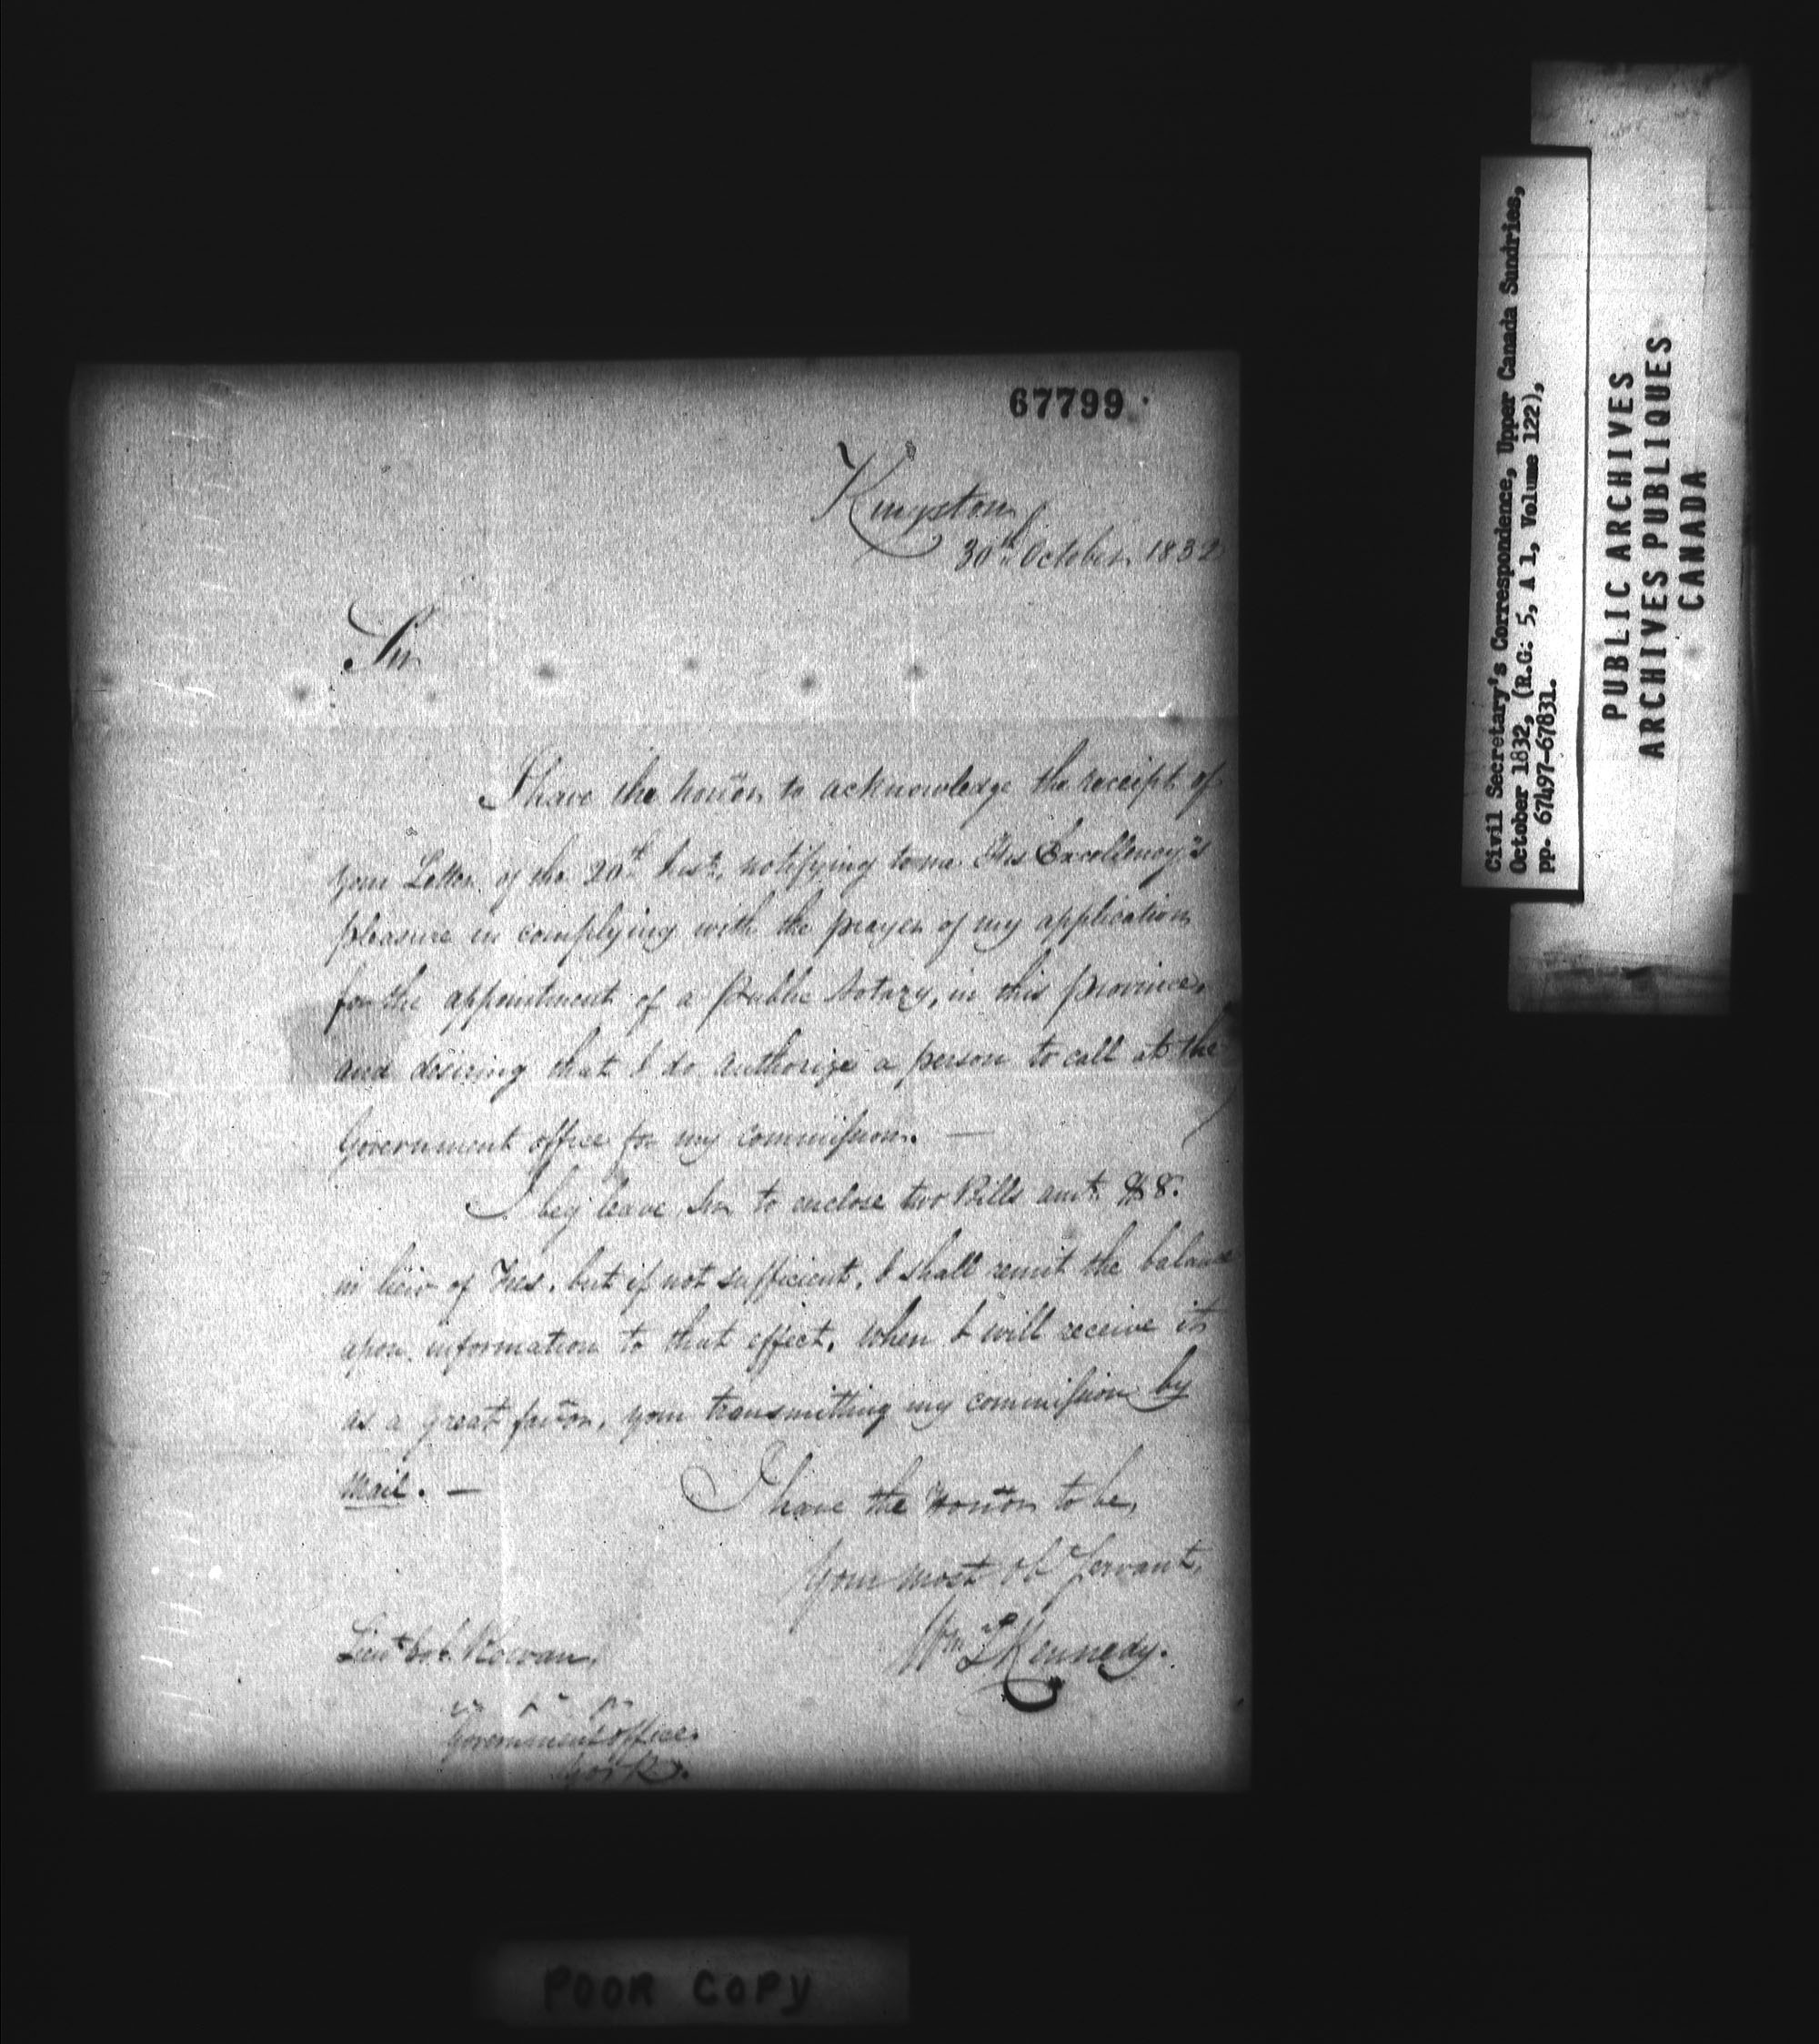 67799
Kingston
30th October 1832
Sir
I have the honor to acknowledge the receipt of
your Letter of the 20th Inst, notifying to me His Excellency's
pleasure in complying with the prayer of my application
for the appointment of a Public Notary, in this province,
and desiring that I do authorize a person to call at the
Government office for my commission. —
I beg leave Sir to enclose two Bills amt. $8.
in lieu of Fees, but if not sufficient, I shall remit the balance
upon information to that effect, when I will receive it
as a great favor, your transmitting my commission by
Mail. —
I have the Honor to be,
Your most Ob Servant,
Wm Kennedy.
Lieut Col. Rowan,
Government office
York.
Civil Secretary's Correspondence, Upper Canada Sundries,
October 1832, (R.G. 5, A 1, Volume 122),
pp. 67497-67831.
PUBLIC ARCHIVES
ARCHIVES PUBLIQUES
CANADA
POOR COPY